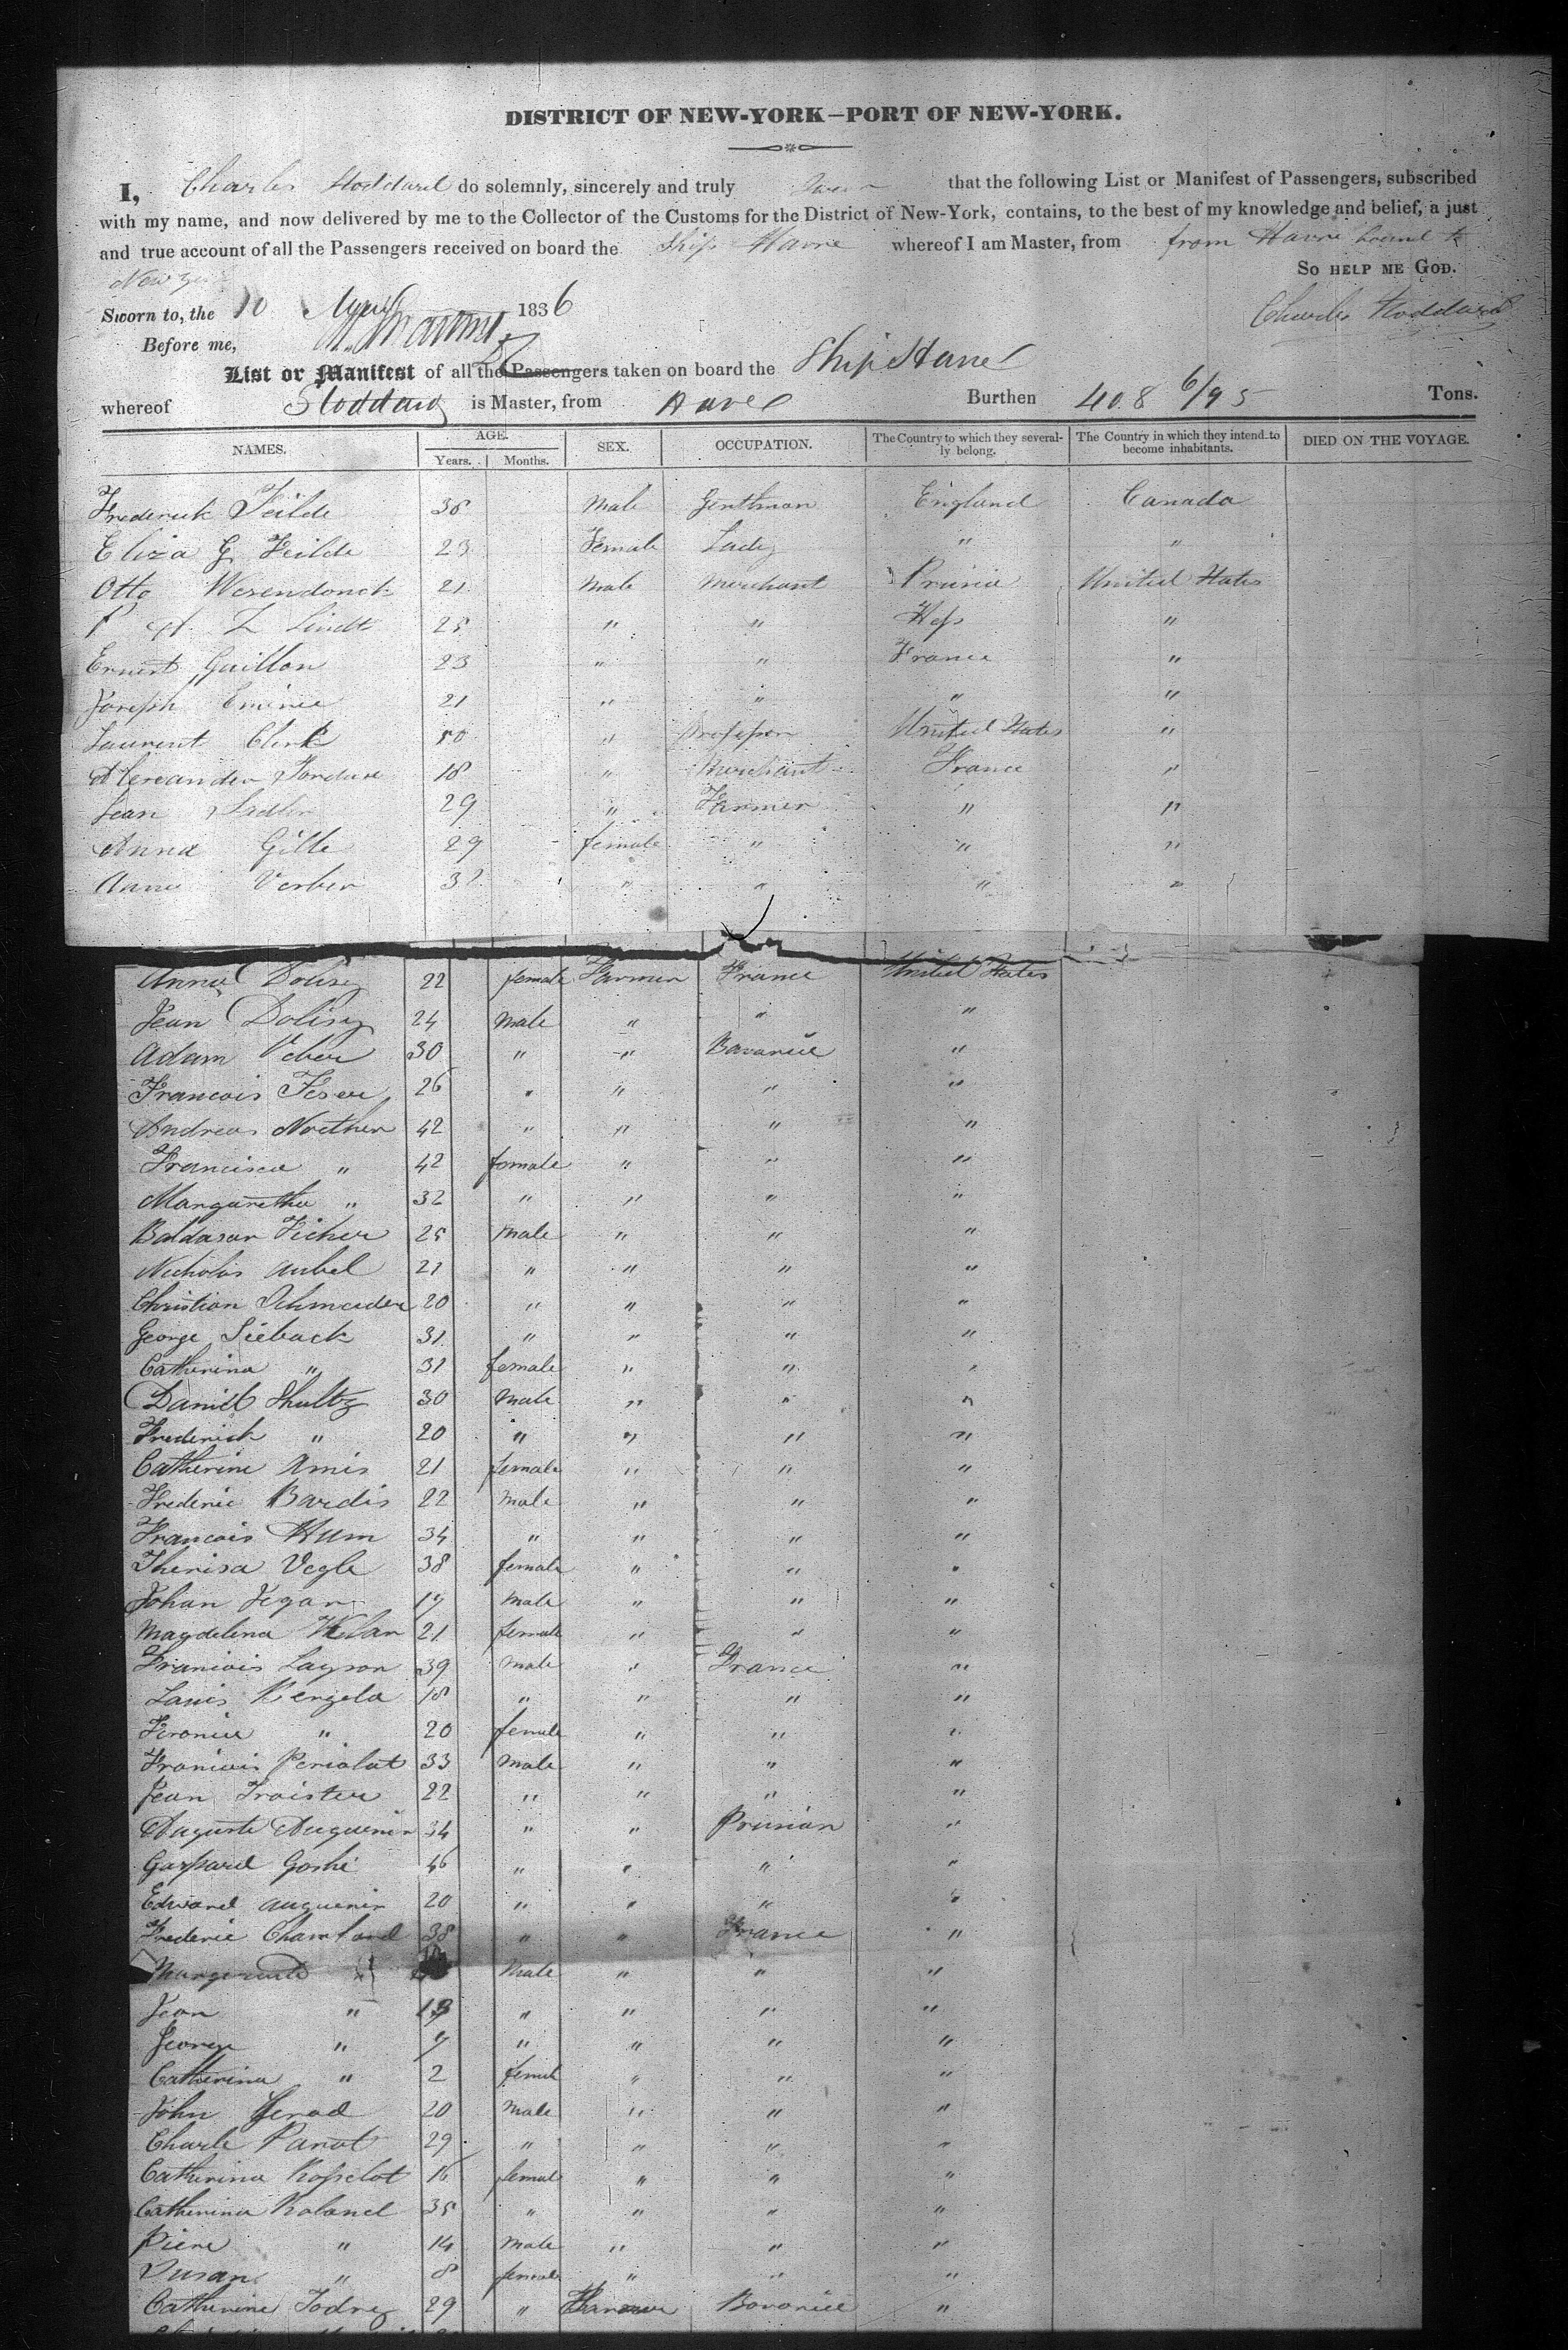 DISTRICT OF NEW-YORK—PORT OF NEW-YORK.
I, Charles Stoddard do solemnly, sincerely and truly swear that the following List or Manifest of Passengers, subscribed
with my name, and now delivered by me to the Collector of the Customs for the District of New-York, contains, to the best of my knowledge and belief, a just
and true account of all the Passengers received on board the Ship Havre whereof I am Master, from from Havre bound to
New York
SO HELP ME GOD.
Sworn to, the 10 April 1836
Charles Stoddard
Before me,
List or Manifest of all the Passengers taken on board the Ship Havre
whereof Stoddard is Master, from Havre Burthen 408 6/95 Tons.
NAMES. AGE. SEX. OCCUPATION. The Country to which they several- The Country in which they intend to DIED ON THE VOYAGE.
Years. Months. ly belong. become inhabitants.
Frederick Feilde 38 Male Gentleman England Canada
Eliza G Feilde 23 Female Lady " "
Otto Wesendonck 21 Male Merchant Prusia United States
P A Z Lindt 25 " " Hess "
Ernest Guillon 23 " " France "
Joseph 21 " " " "
Laurent Clerk 50 " Professor United States "
Alexander 18 " Merchant France "
Jean Sadler 29 " Farmer " "
Anna Gille 29 female " " "
Anna Verber 32 " " " "
Anna Dolisy 22 female Farmer France United States
Jean Dolisy 24 Male " " "
Adam Veber 30 " " Bavariie "
Francois Feser 26 " " " "
Andreas Noether 42 " " " "
Francisca " 42 female " " "
Margaretha " 32 " " " "
Baldasar Ficher 25 Male " " "
Nicholas Aubel 21 " " " "
Christian Schmeeder 20 " " " "
George Sieback 31 " " " "
Catherina " 31 female " " "
Daniel Shultz 30 Male " " "
Frederick " 20 " " " "
Catherine Amis 21 female " " "
Frederic Bardis 22 Male " " "
Francois Hum 34 " " " "
Therisa Vogle 38 female " " "
Johan Jegan 17 Male " " "
Magdelina 21 female " " "
Francois Layson 39 Male " France "
Louis Rengela 18 " " " "
Feronia " 20 female " " "
Francois Perialat 33 Male " " "
Jean Troister 22 " " " "
Auguste Auguenin 34 " " Prusian "
Gaspard Goshe 46 " " " "
Edward Auguenin 20 " " " "
Frederic 38 " " France "
Marguerite " Male " " "
Jean " " " " "
George " 7 " " " "
Catherina " 2 female " " "
John Gerad 20 Male " " "
Charle Parrot 29 " " " "
Catherina Rosselot 16 female " " "
Catherina Roland 35 " " " "
Piere " 14 Male " " "
Susan " 8 female " " "
Catherine Todry 29 " Farmer Bavariie "